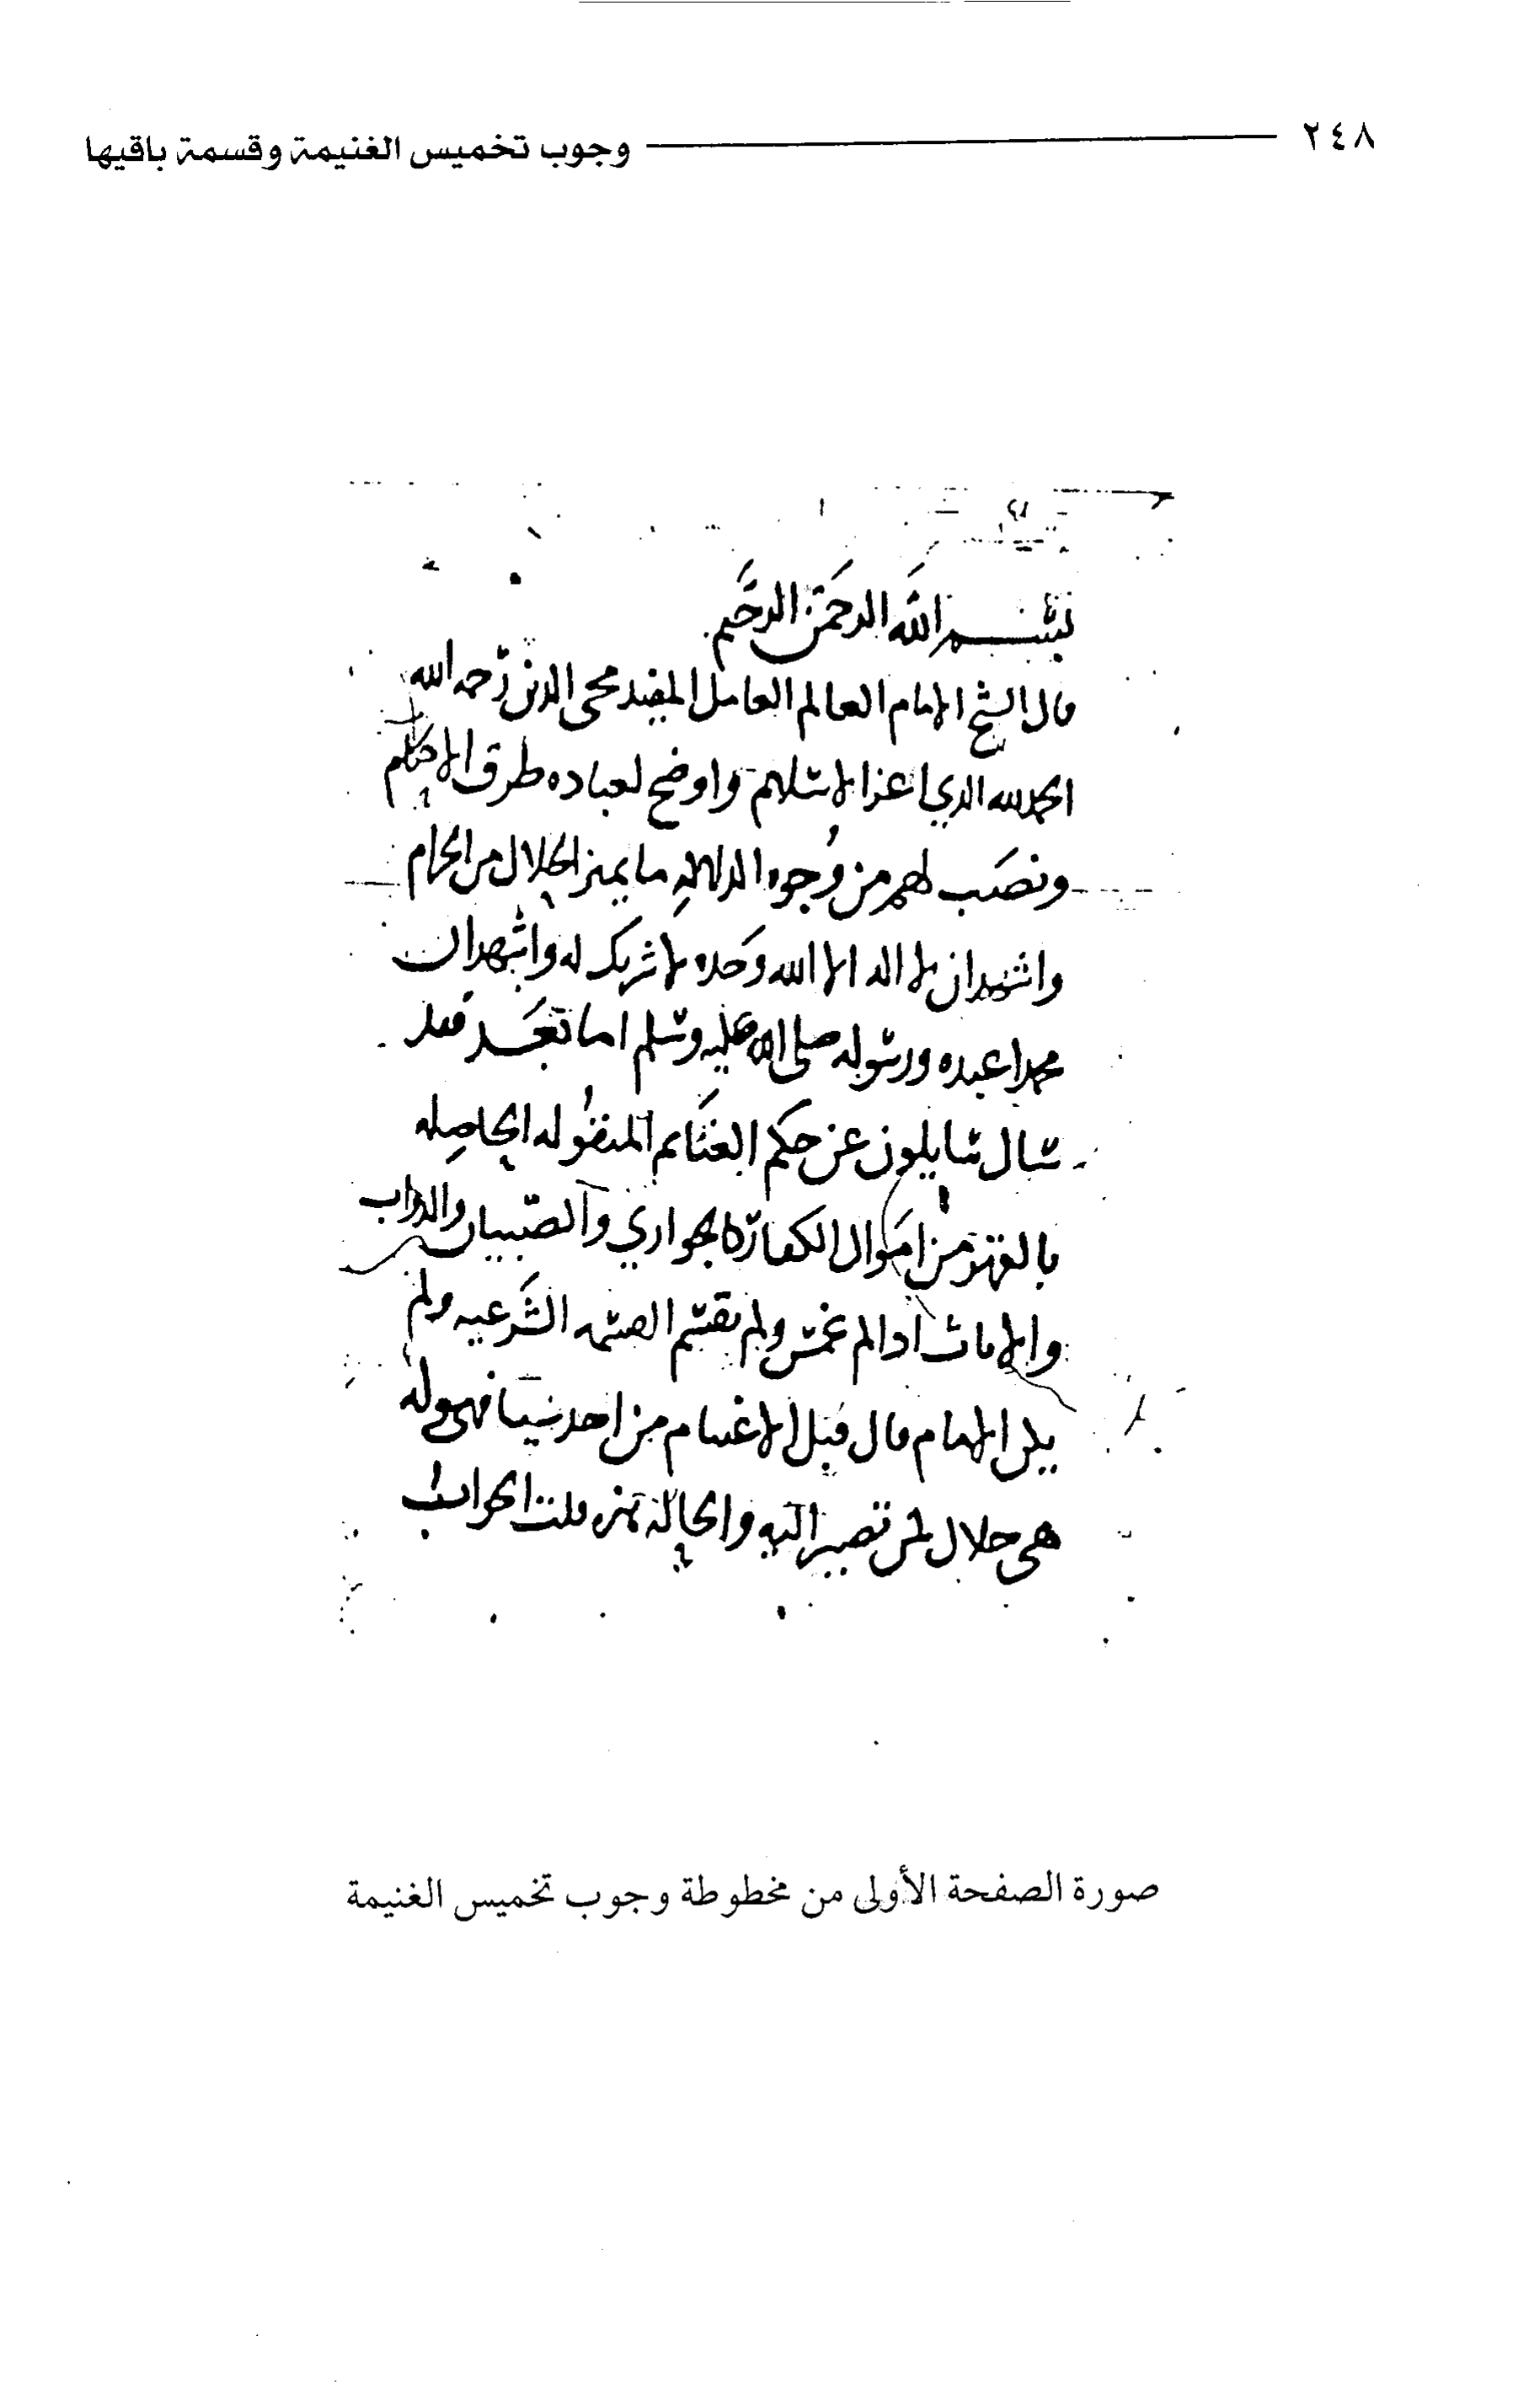 ٢٤٨ وجوب تخميس الغنيمة وقسمة باقيها
بسم الله الرحمن الرحيم
قال الشيخ الامام العالم العامل المفيد محي الدين رحمه الله
الحمد لله الذي اعز الاسلام واوضح لعباده طرق الاحكام
ونصب لهم من وجوه الدلالة ما يميز الحلال من الحرام
واشهد ان لا اله الا الله وحده لا شريك له واشهد ان
محمدا عبده ورسوله صلى الله عليه وسلم اما بعد فقد
سال سايلون عن حكم الغنايم المنقوله الحاصله
بالقهر من اموال الكفار كالجواري والصبيان والدواب
والاماث اذا لم تخمس ولم تقسم القسمه الشرعيه ولم
يكن الامام قال قبل الاغتنام من اخذ شيا فهو له
هي حلال لمن تصير اليه والحالة هذه قلت الجواب
صورة الصفحة الأولى من مخطوطة وجوب تخميس الغنيمة